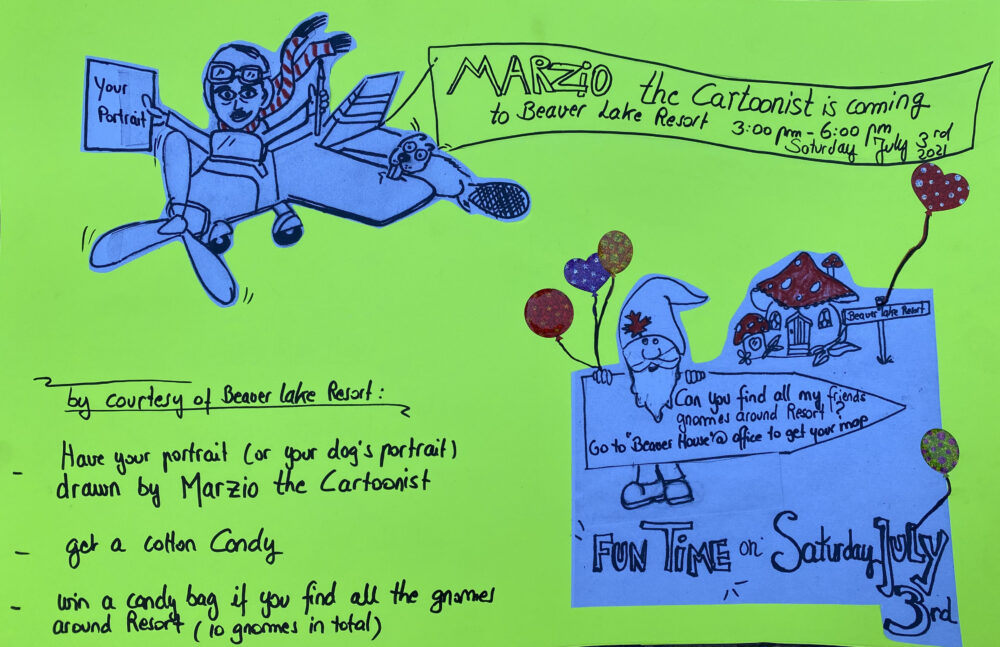 Your
Portrait
MARZiO the Cartoonist is coming
to Beaver Lake Resort 3:00 pm - 6:00 pm
Saturday July 3rd
2021
Beaver Lake Resort
Can you find all my friends
gnomes around Resort?
Go to "Beaver House"@ office to get your map
by courtesy of Beaver Lake Resort:
- Have your portrait (or your dog's portrait)
drawn by Marzio the Cartoonist
- get a cotton Candy
- win a candy bag if you find all the gnomes
around Resort (10 gnomes in total)
FUN TIME on Saturday JULY
3rd